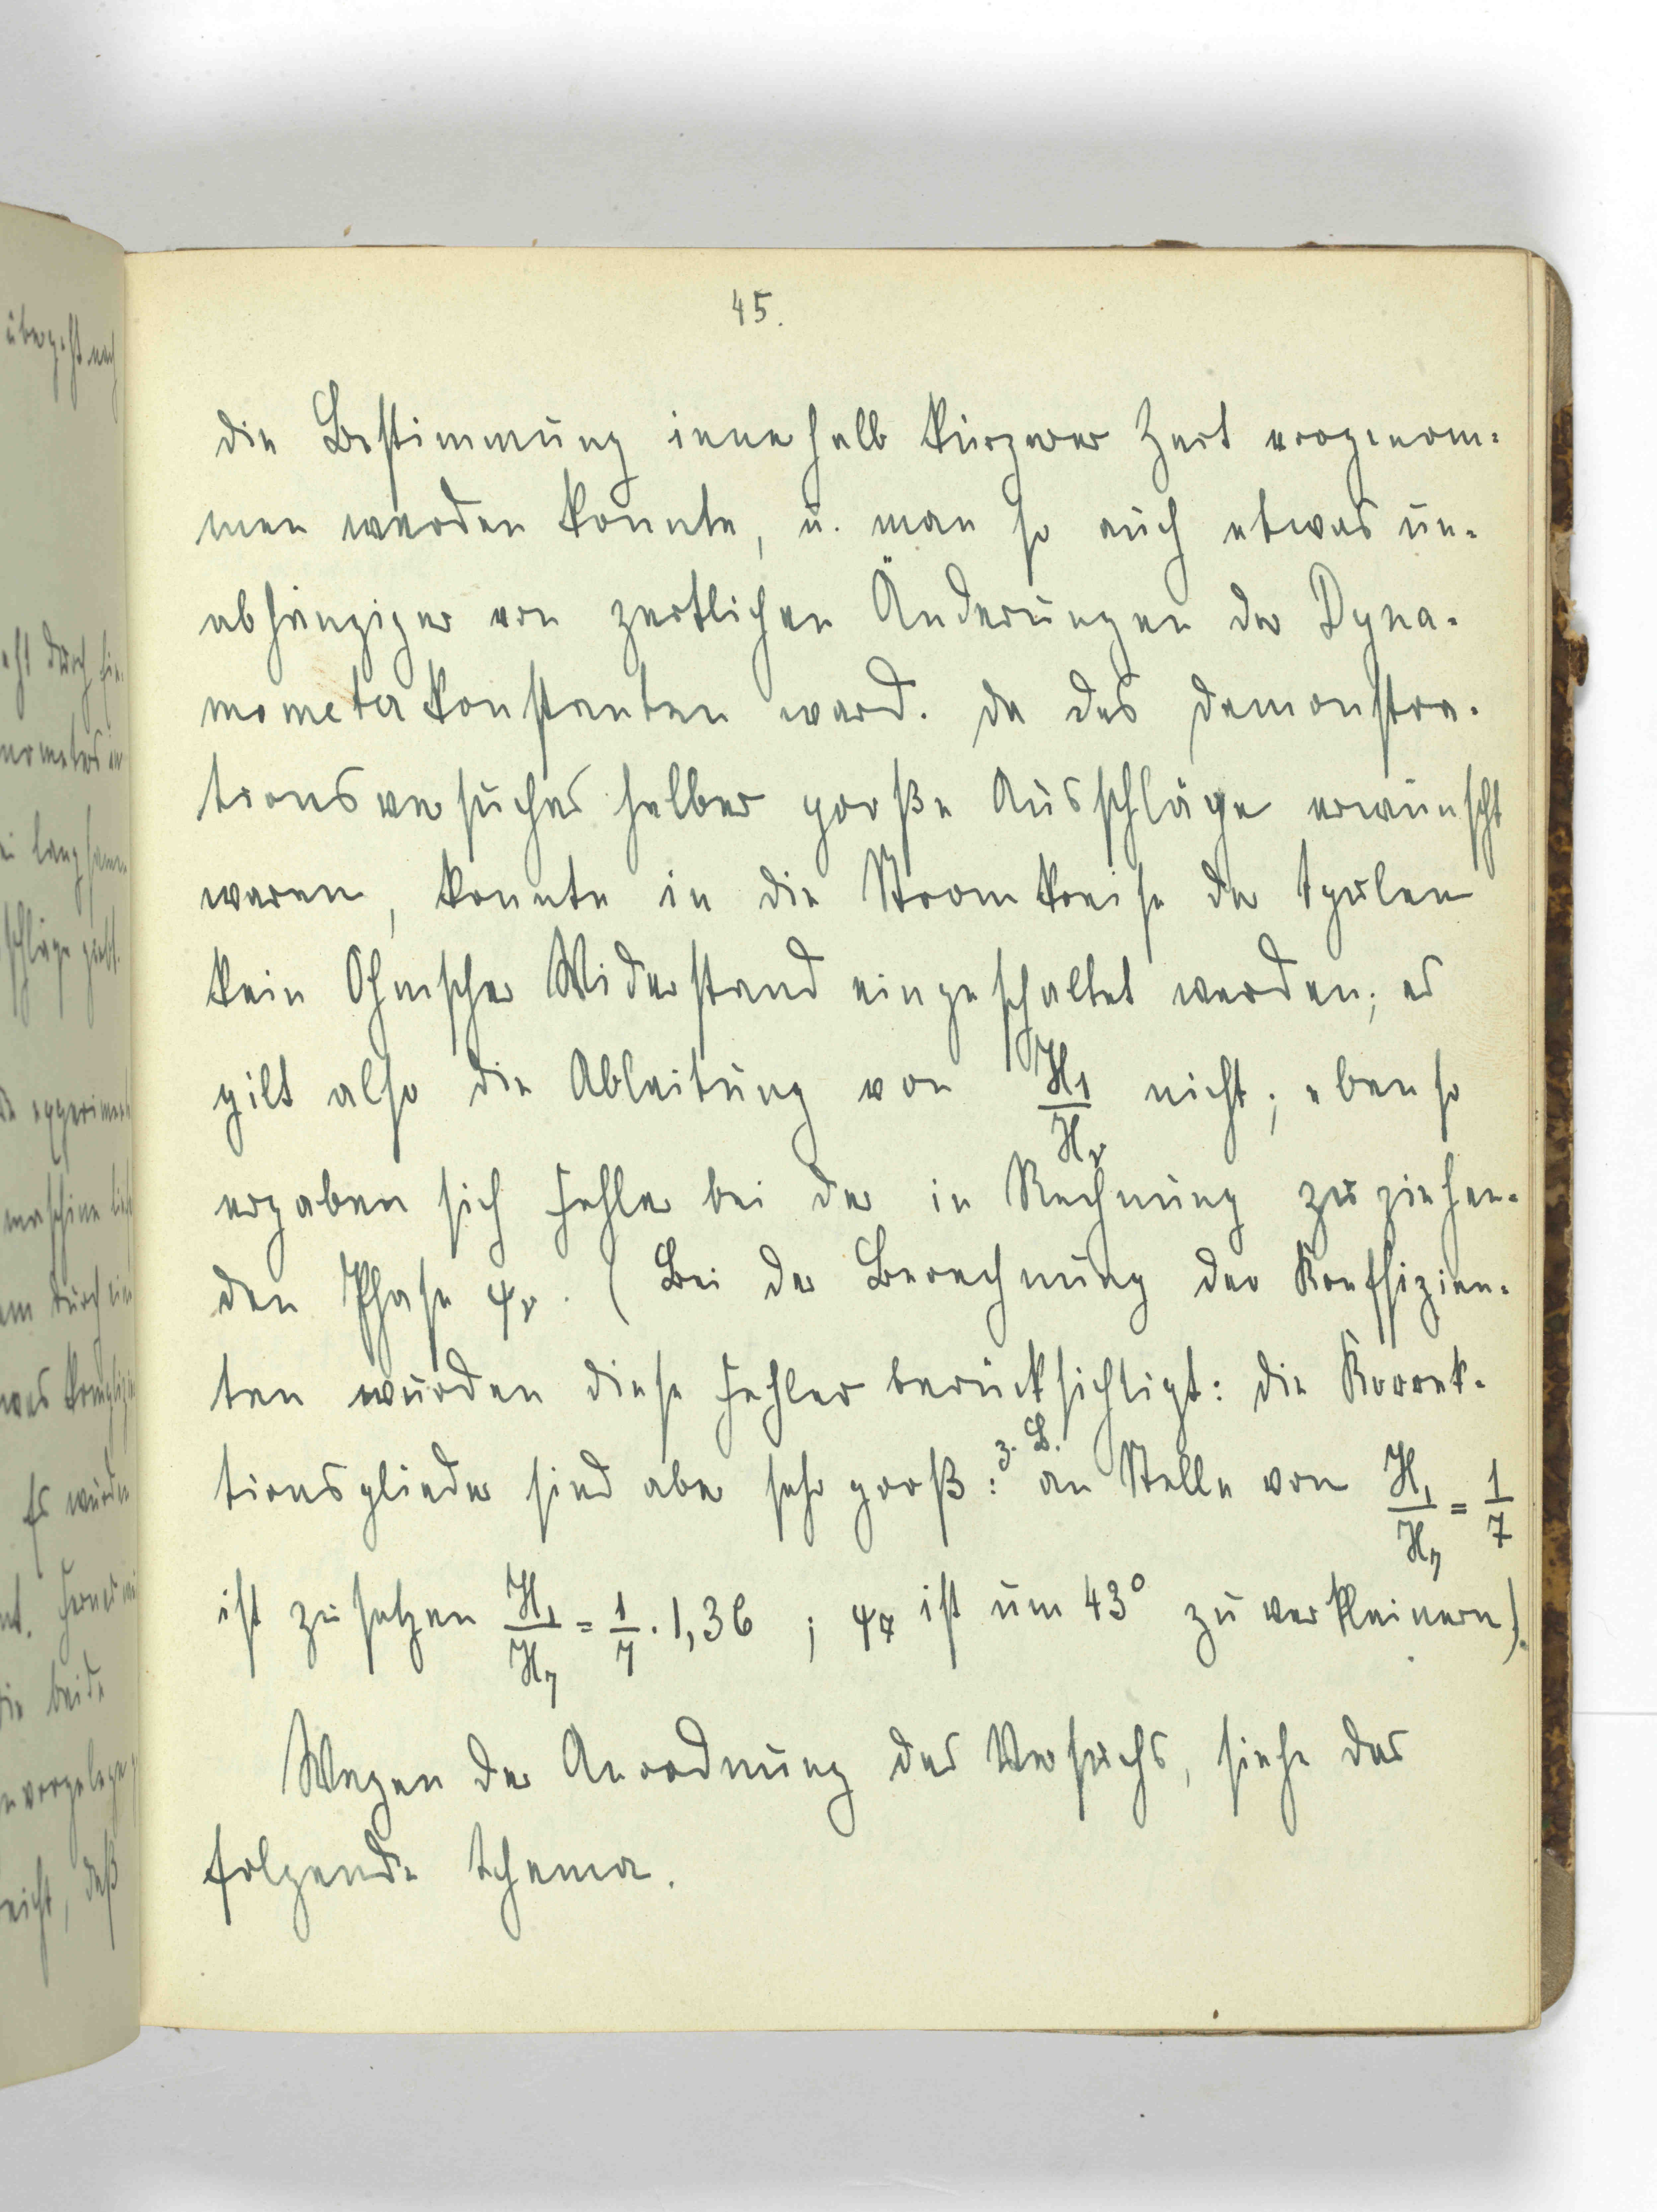 45.
die Bestimmung innerhalb kürzerer Zeit vorgenom-
men werden konnte, u. man so auch etwas un-
abhängiger von zeitlichen Änderungen der Dyna-
mometerkonstanten ward. Da des Demonstra-
tionsversuches halber große Ausschläge erwünscht
waren, konnte in die Stromkreise der Spulen
kein Ohmscher Widerstand eingeschaltet werden; es
gilt also die Ableitung von H₁/Hᵥ nicht; ebenso
ergaben sich Fehler bei der in Rechnung zu ziehen-
den Phase φᵥ. (Bei der Berechnung der Koeffizien-
ten wurden diese Fehler berücksichtigt: die Korrek-
tionsglieder sind aber sehr groß: z. B. an Stelle von H₁/H₇ = 1/7
ist zu setzen H₁/H₇ = 1/7 · 1,36 ; φ₇ ist um 43° zu verkleinern).
Wegen der Anordnung des Versuchs, siehe das
folgende Schema.